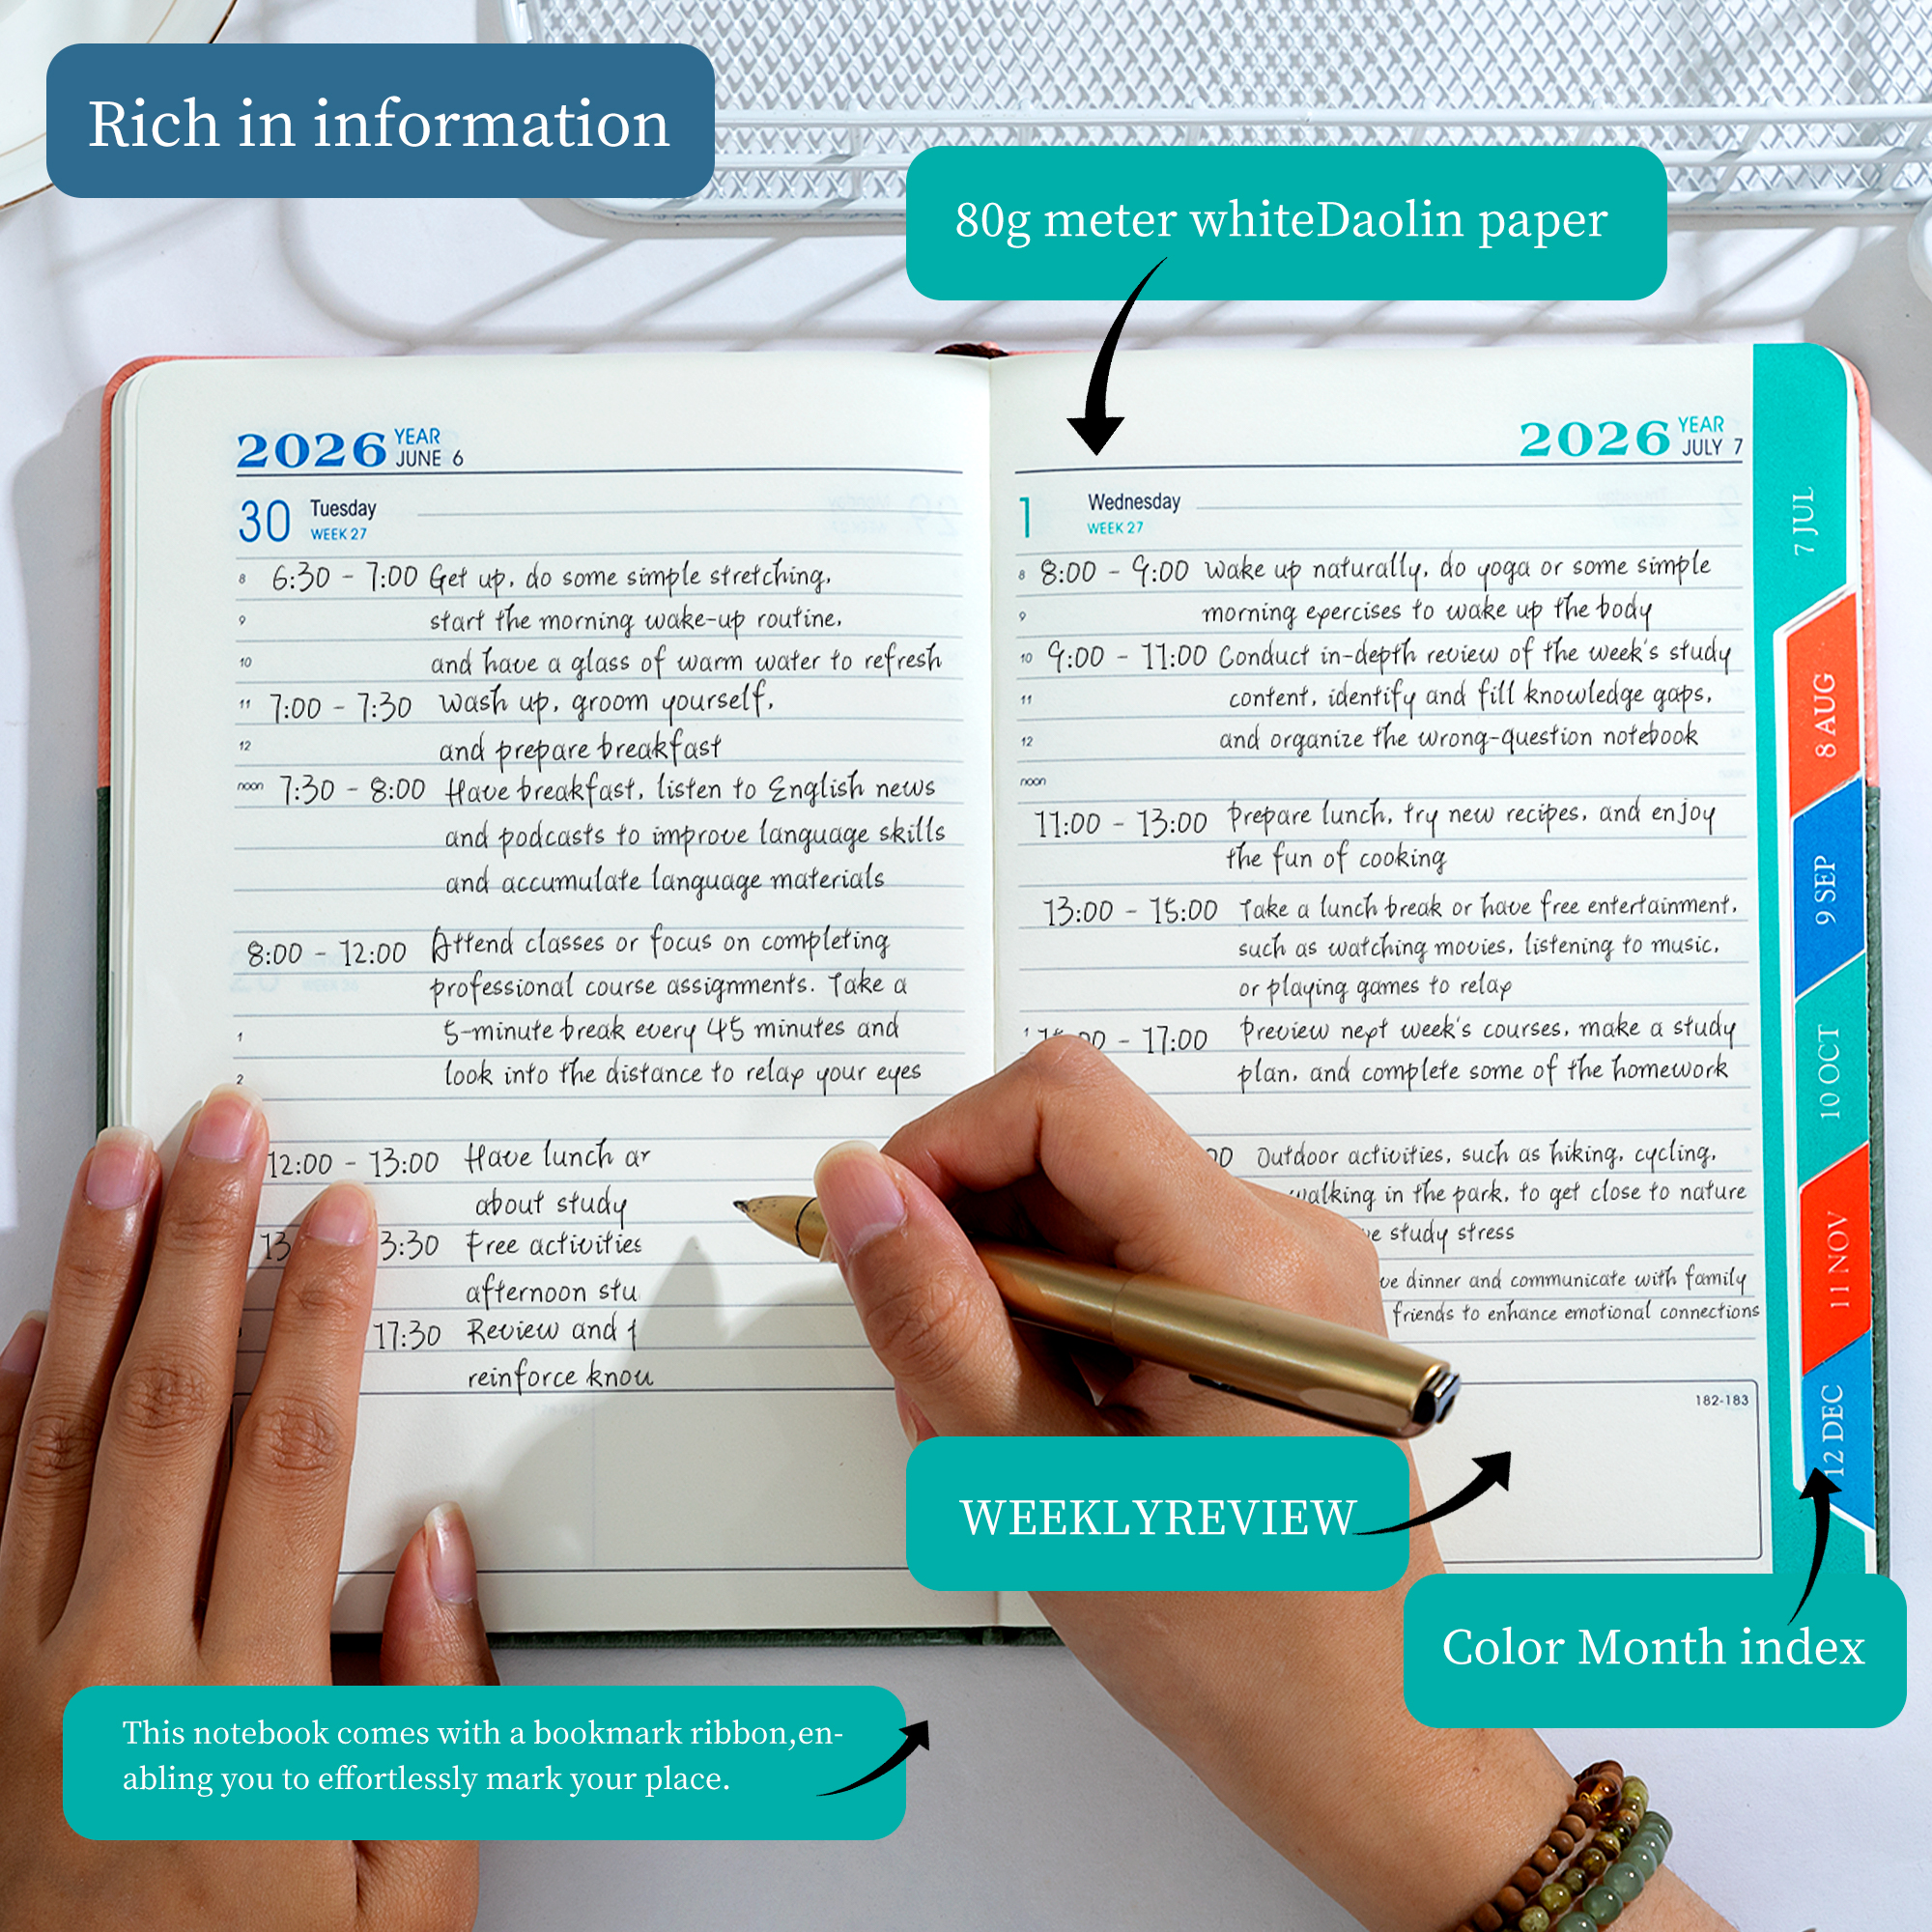 Rich in information
80g meter whiteDaolin paper
2026 YEAR
JUNE 6
30 Tuesday
WEEK 27
8 6:30 - 7:00 Get up, do some simple stretching,
9 start the morning wake-up routine,
10 and have a glass of warm water to refresh
11 7:00 - 7:30 Wash up, groom yourself,
12 and prepare breakfast
noon 7:30 - 8:00 Have breakfast, listen to English news
and podcasts to improve language skills
and accumulate language materials
8:00 - 12:00 Attend classes or focus on completing
professional course assignments. Take a
1 5-minute break every 45 minutes and
2 look into the distance to relax your eyes
12:00 - 13:00 Have lunch
about study
13 3:30 Free activities
afternoon
17:30 Review and
reinforce
2026 YEAR
JULY 7
1 Wednesday
WEEK 27
8 8:00 - 9:00 Wake up naturally, do yoga or some simple
9 morning exercises to wake up the body
10 9:00 - 11:00 Conduct in-depth review of the week's study
11 content, identify and fill knowledge gaps,
12 and organize the wrong-question notebook
noon
11:00 - 13:00 Prepare lunch, try new recipes, and enjoy
the fun of cooking
13:00 - 15:00 Take a lunch break or have free entertainment,
such as watching movies, listening to music,
or playing games to relax
1 - 17:00 Preview next week's courses, make a study
plan, and complete some of the homework
Outdoor activities, such as hiking, cycling,
walking in the park, to get close to nature
study stress
dinner and communicate with family
friends to enhance emotional connections
182-183
7 JUL
8 AUG
9 SEP
10 OCT
11 NOV
12 DEC
WEEKLYREVIEW
Color Month index
This notebook comes with a bookmark ribbon,en-
abling you to effortlessly mark your place.